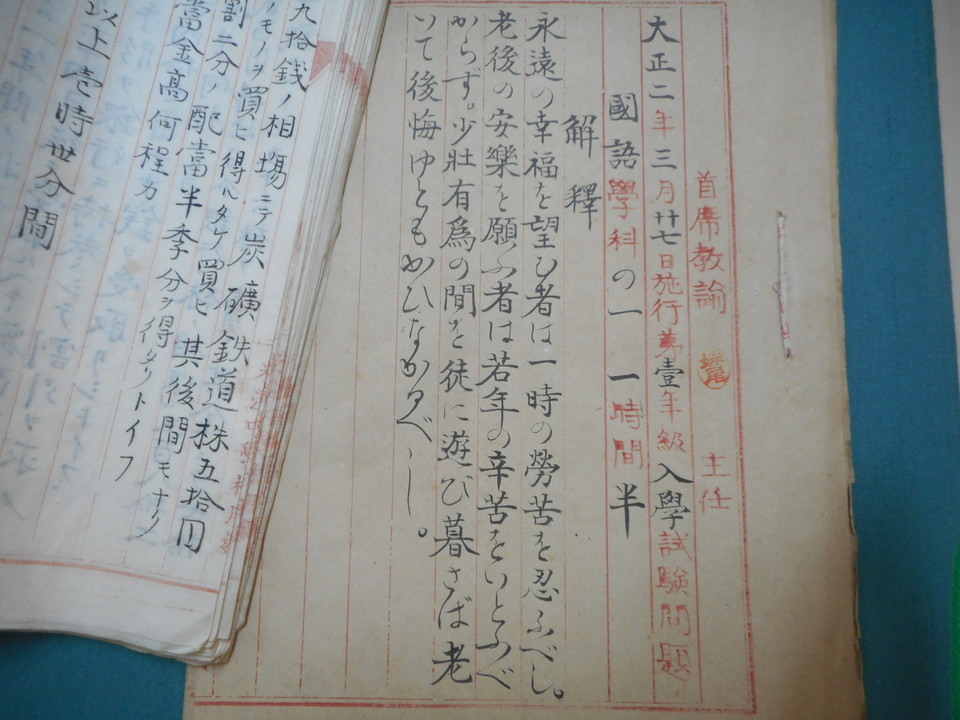 首席教諭 主任
大正二年三月廿七日施行第壹年級入學試験問題
國語學科の一 一時間半
解釋
永遠の幸福を望む者は一時の勞苦を忍ふべし。
老後の安樂を願ふ者は若年の辛苦をいとふべ
からず。少壮有爲の間を徒に遊び暮さば老
いて後悔ゆともかひなかるべし。
九拾銭ノ相場ニテ炭礦鉄道株五拾円
ノモノヲ買ヒ得ルタケ買ヒ其後間モナク
割二分ノ配當半季分ヲ得タリトイフ
當金高何程カ
以上壱時丗分間